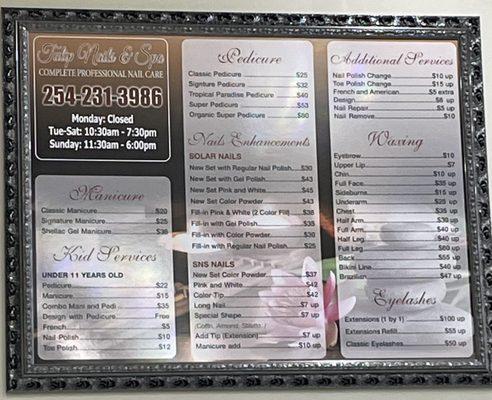 Tulip Nails & Spa
COMPLETE PROFESSIONAL NAIL CARE
254-231-3986
Monday: Closed
Tue-Sat: 10:30am - 7:30pm
Sunday: 11:30am - 6:00pm
Manicure
Classic Manicure $20
Signature Manicure $25
Shellac Gel Manicure $38
Kid Services
UNDER 11 YEARS OLD
Pedicure $22
Manicure $15
Combo Mani and Pedi $35
Design with Pedicure Free
French $5
Nail Polish $10
Toe Polish $12
Pedicure
Classic Pedicure $25
Signture Pedicure $32
Tropical Paradise Pedicure $40
Super Pedicure $53
Organic Super Pedicure $60
Nails Enhancements
SOLAR NAILS
New Set with Regular Nail Polish $30
New Set with Gel Polish $43
New Set Pink and White $45
New Set Color Powder $43
Fill-in Pink & White (2 Color Fill) $38
Fill-in with Gel Polish $38
Fill-in with Color Powder $38
Fill-in with Regular Nail Polish $25
SNS NAILS
New Set Color Powder $37
Pink and White $42
Color Tip $42
Long Nail $7 up
Special Shape $7 up
(Coffin, Almond, Stiletto.)
Add Tip (Extension) $7 up
Manicure add $10 up
Additional Services
Nail Polish Change $10 up
Toe Polish Change $15 up
French and American $5 extra
Design $6 up
Nail Repair $5 up
Nail Remove $10 up
Waxing
Eyebrow $10
Upper Lip $7
Chin $10 up
Full Face $35 up
Sideburns $15 up
Underarm $25 up
Chest $35 up
Half Arm $30 up
Full Arm $40 up
Half Leg $40 up
Full Leg $60 up
Back $55 up
Bikini Line $40 up
Brazilian $47 up
Eyelashes
Extensions (1 by 1) $100 up
Extensions Refill $55 up
Classic Eyelashes $50 up